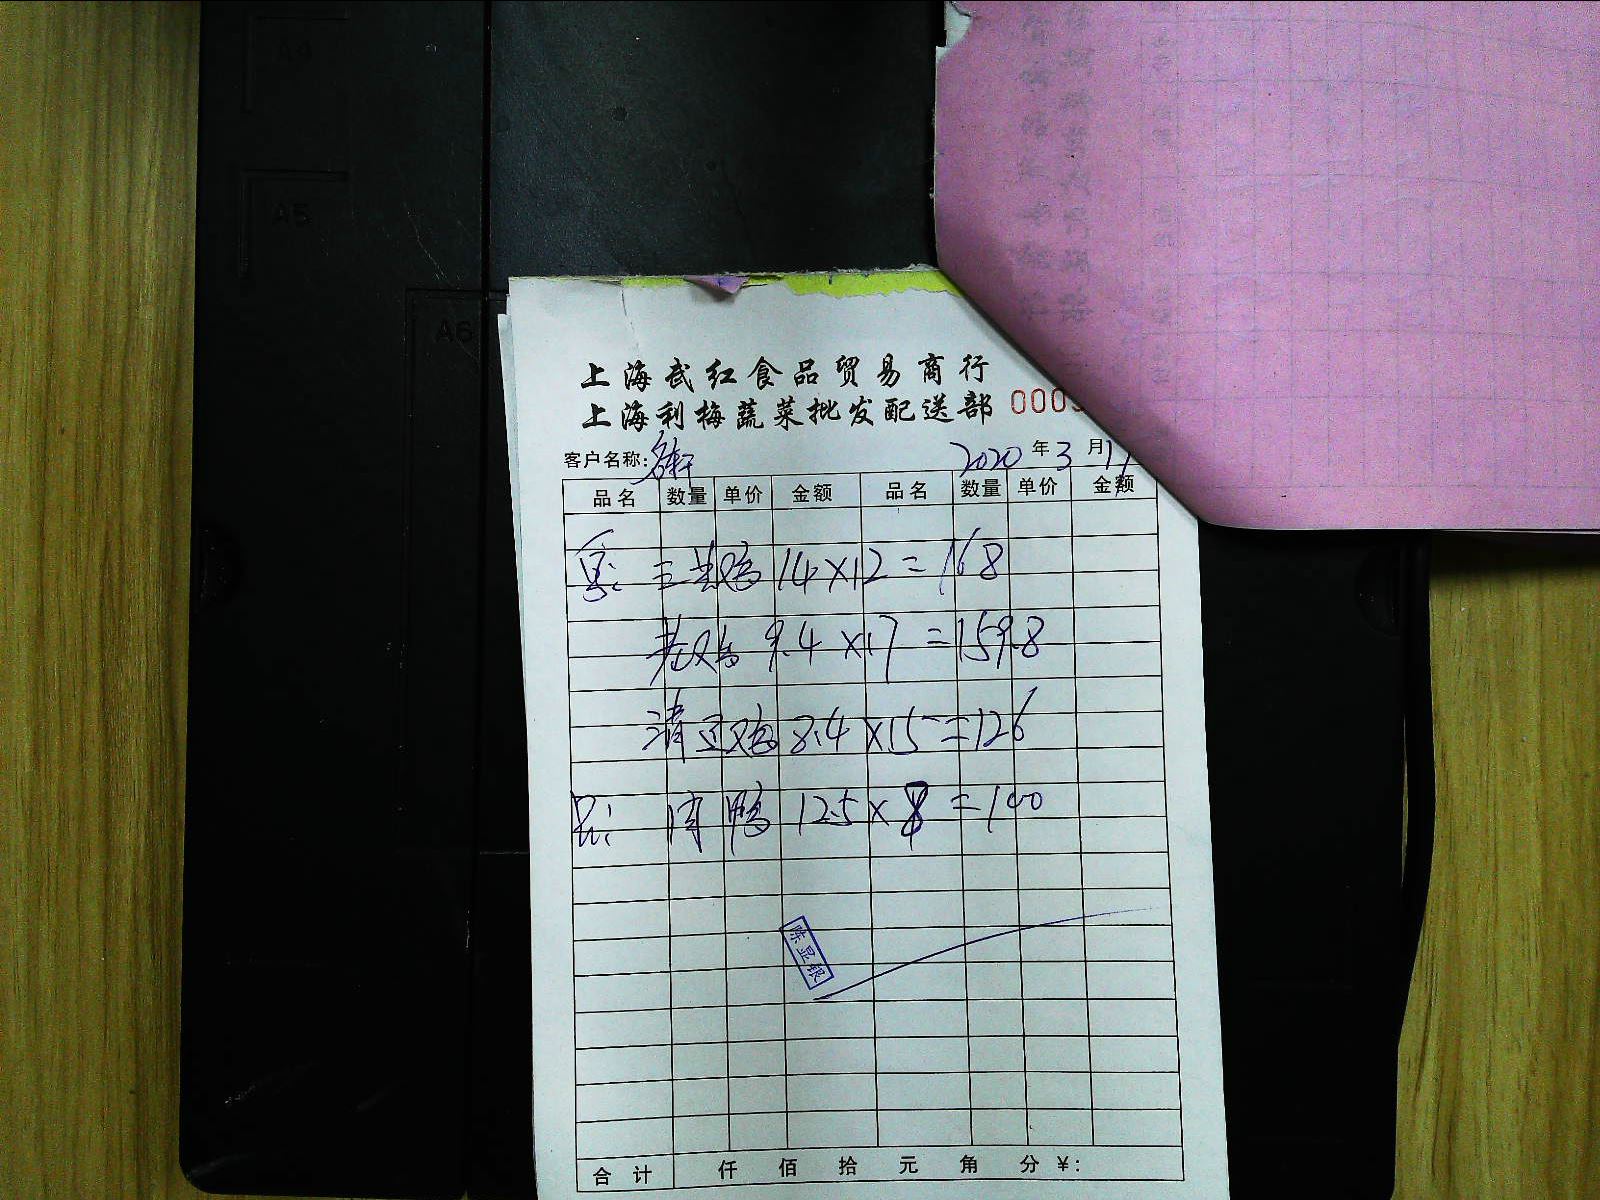 A4
A5
A6
上海武红食品贸易商行
上海利梅蔬菜批发配送部 000
客户名称: 2020年3月
品名 数量 单价 金额 品名 数量 单价 金额
三黄鸡 14×12=168
老鸡 9.4×17=159.8
清远鸡 8.4×15=126
鸭 12.5×8=100
陈显银
合计 仟 佰 拾 元 角 分 ¥: